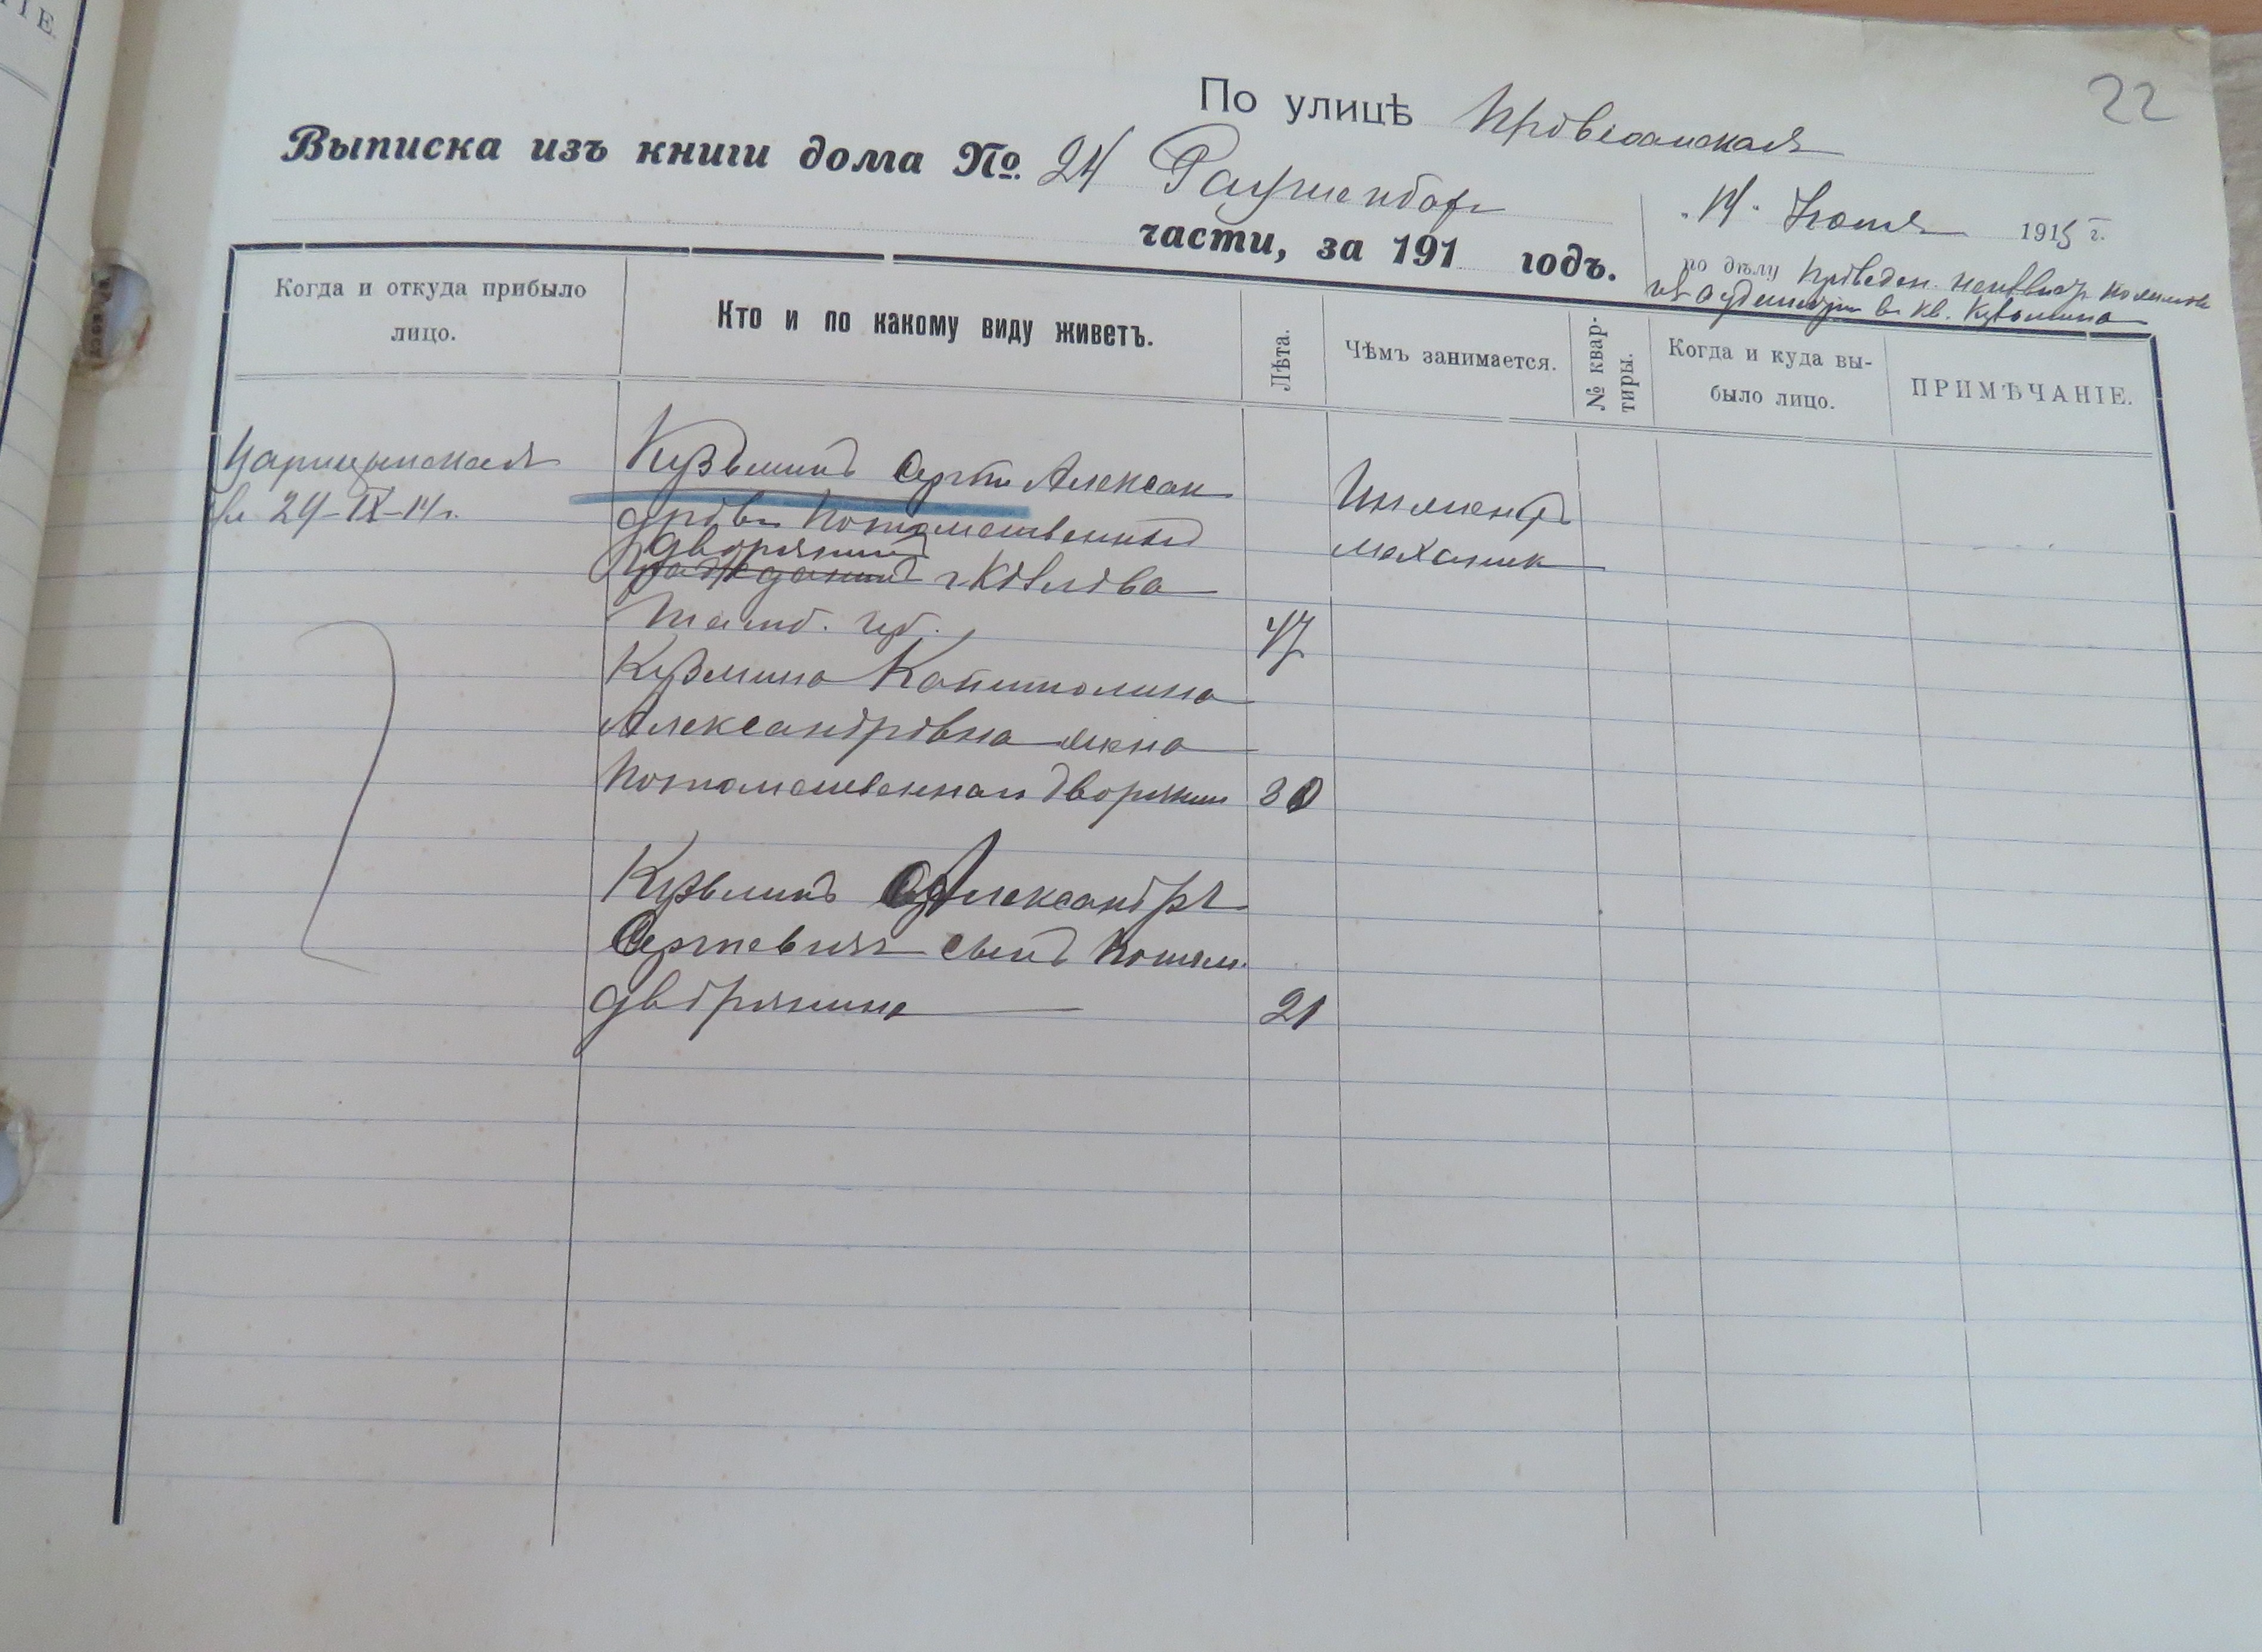 22
По улицѣ
Выписка изъ книги дома №. 24
14 1915 г.
части, за 191 годъ.
по дѣлу
в кв. Кузьмина
Когда и откуда прибыло
лицо.
Кто и по какому виду живетъ.
Лѣта.
Чѣмъ занимается.
№ квар-
тиры.
Когда и куда вы-
было лицо.
ПРИМѢЧАНІЕ.
Царицынская
24-IX-14г.
Кузьминъ Сергѣй Алексан
дровъ Потомственный
дворянинъ
гражданинъ г Козлова
Тамб. губ. 47
Инженеръ
механик
Кузмина Капитолина
Александровна жена
Потомственная дворянин 30
Кузьминъ Александръ
Сергѣевичъ сынъ Потом.
дворянина 21